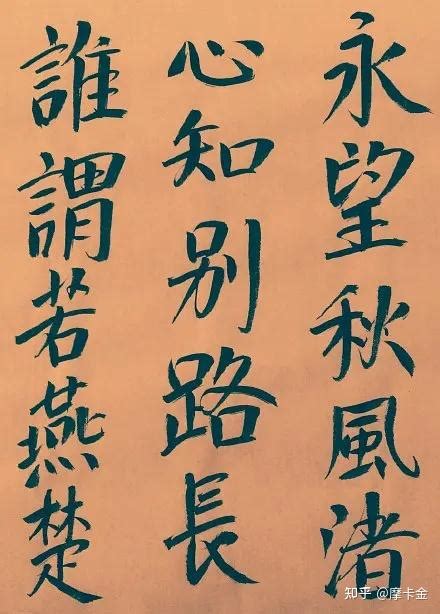 永望秋風渚
心知别路長
誰謂若燕楚
知乎 @摩卡金